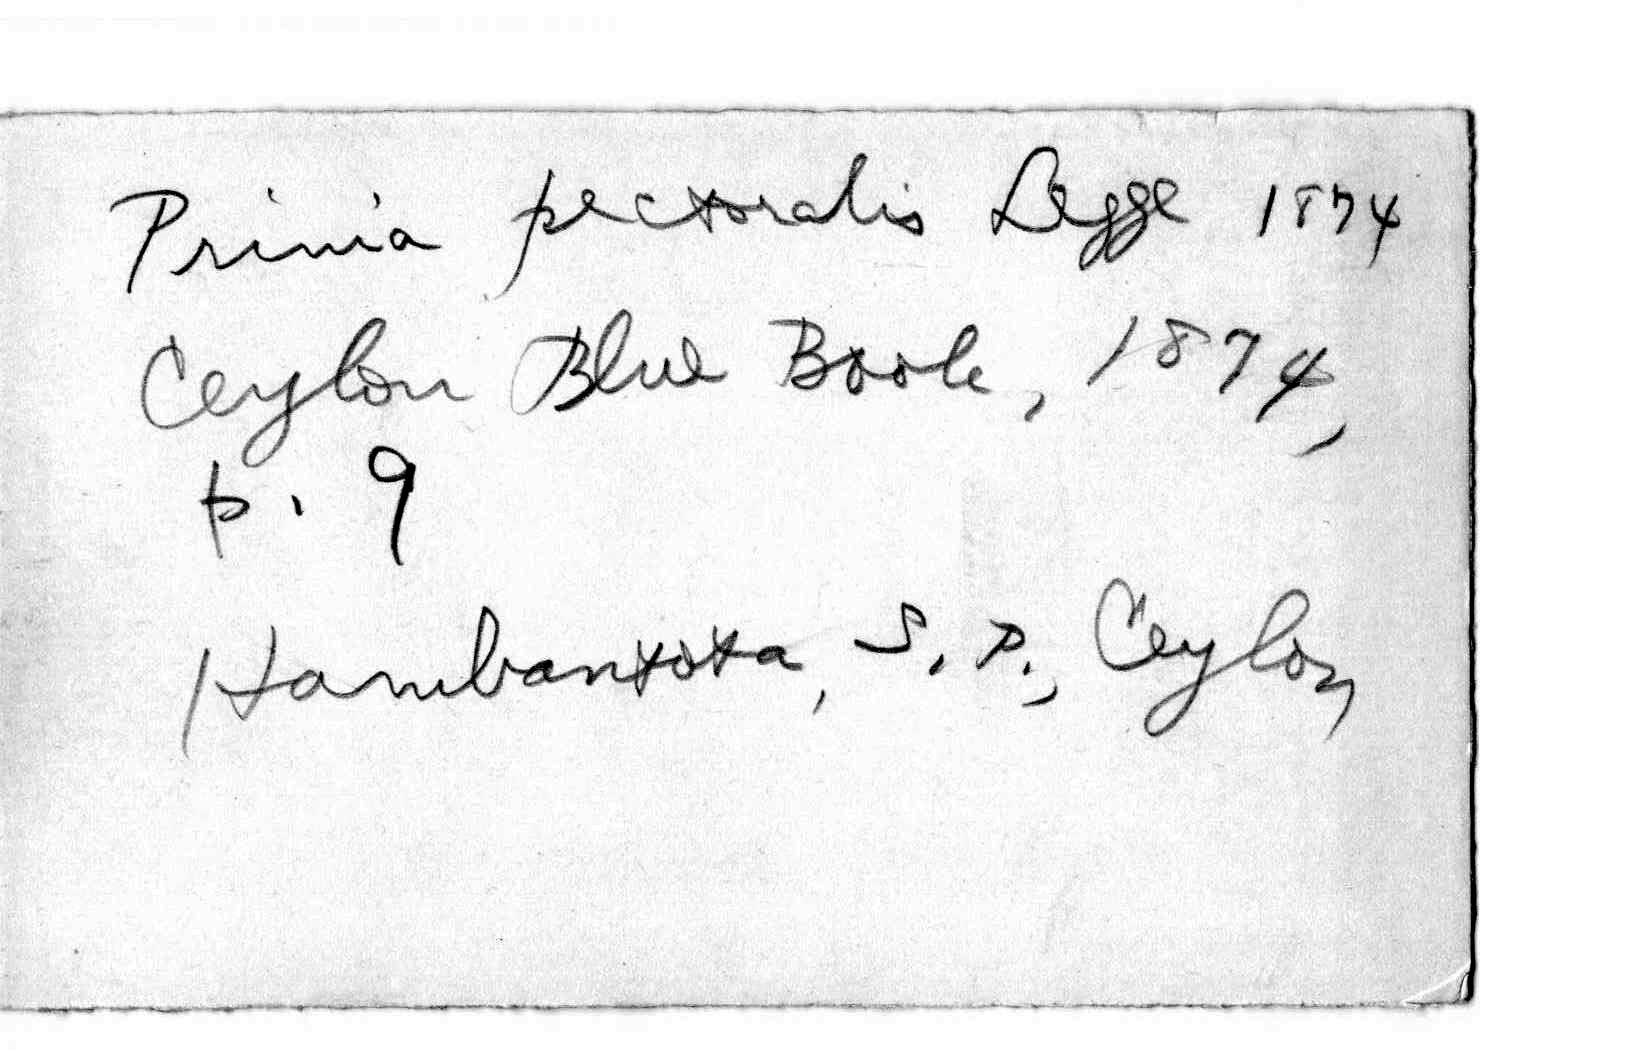 Prinia pectoralis Legge 1874
Ceylon Blue Book, 1874,
p. 9
Hambantota, S. P., Ceylon